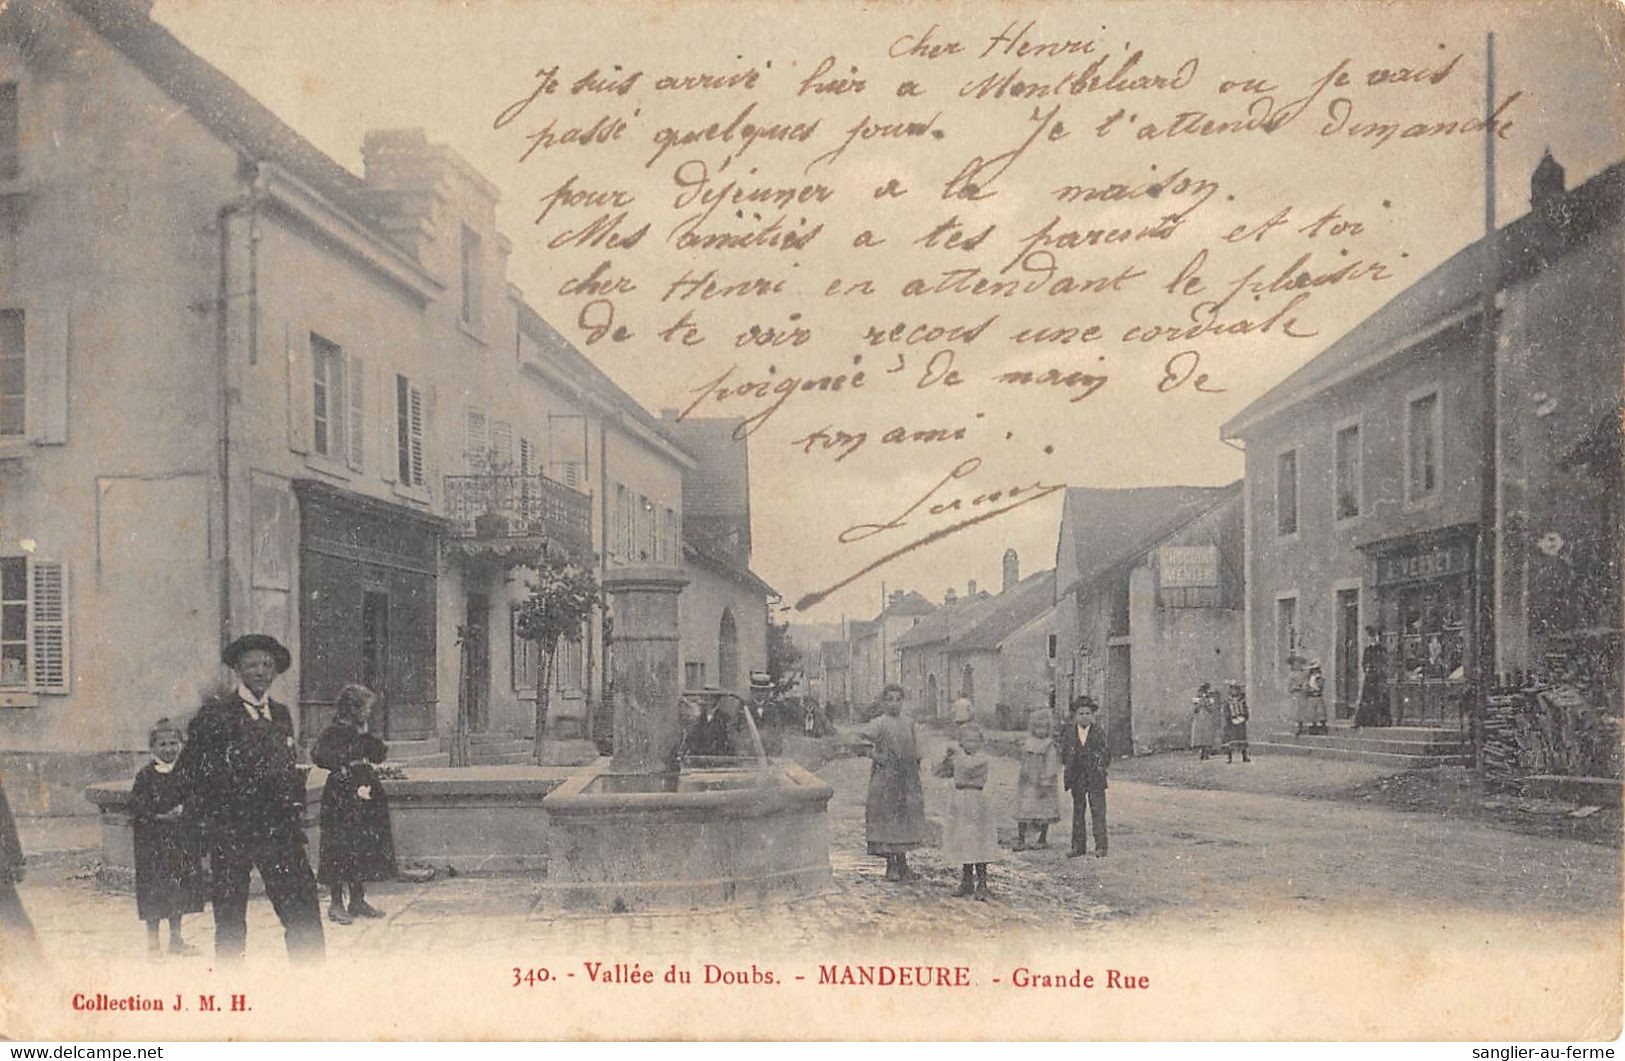 Cher Henri.
Je suis arrivé hier a Montbeliard ou je vais
passé quelques jours. Je t'attends dimanche
pour déjeuner a la maison.
Mes amitiés a tes parents et toi
cher Henri en attendant le plaisir
de te voir reçois une cordiale
poignée de main de
ton ami.
340. - Vallée du Doubs. - MANDEURE. - Grande Rue
Collection J. M. H.
sanglier-au-ferme